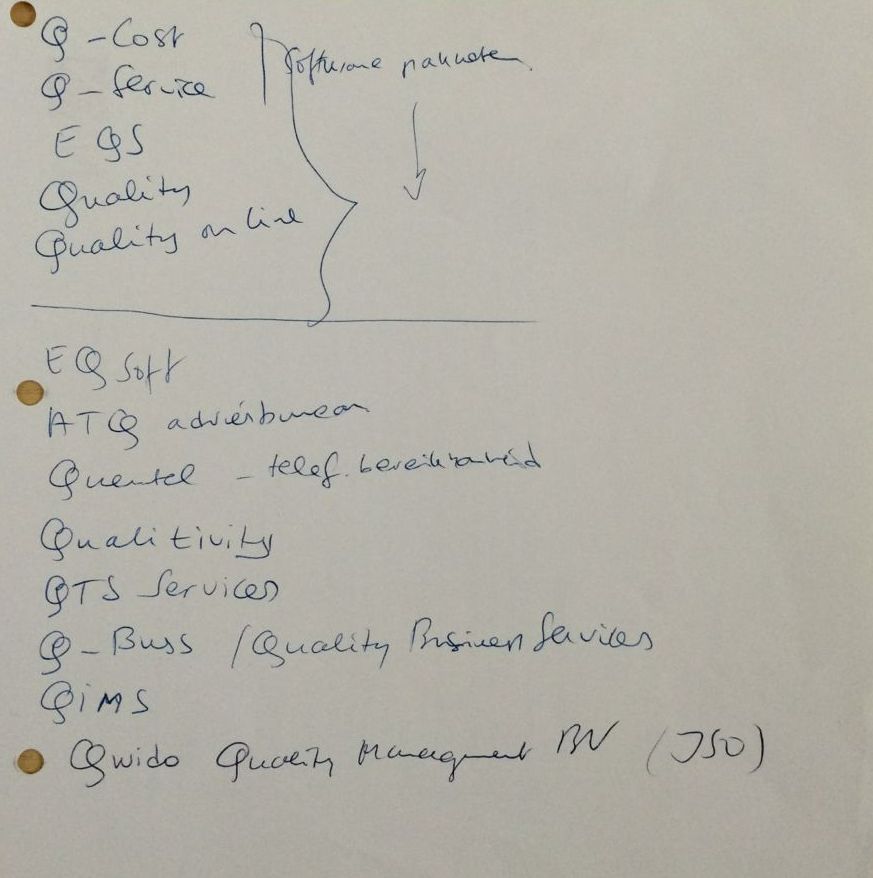 Q - Cost
Q - Service
software pakketten.
EQS
Quality
Quality on line
EQ Soft
ATQ adviesbureau
Quentel - telef. bereikbaarheid
Qualitivity
QTS Services
Q - Buss / Quality Business Services
QiMS
Qwido Quality Managment BV (ISO)